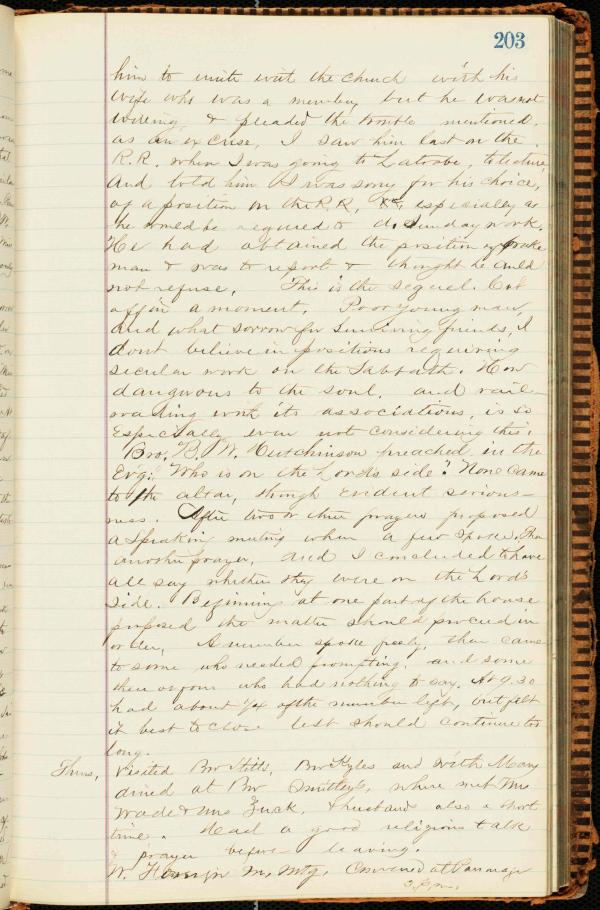 203
him to unite with the church with his
wife who was a member, but he was not
willing & pleaded the trouble mentioned,
as an excuse, I saw him last on the
R.R. when I was going to Latrobe, to lecture
And told him I was sorry for his choice,
of a position on the R.R, especially as
he would be required to do Sunday work.
He had obtained the position of brake
man & was to report & thought he could
not refuse, This is the sequel. Cut
off in a moment. Poor young man,
and what sorrow for surviving friends, I
dont believe in positions requiring
secular work on the Sabbath. How
dangerous to the soul, and rail-
roading with its associations, is so
Especially even not considering this.
Bro. B. W. Hutchinson preached in the
Ev'g: "Who is on the Lords side"? None came
to the altar, though evident serious-
ness. After two or three prayers proposed
a speaking meeting when a few spoke. Then
another prayer, and I concluded to have
all say whether they were on the Lord's
Side. Beginning at one part of the house
proposed the matter should proceed in
order, A number spoke freely, then came
to some who needed prompting, and some
three or four who had nothing to say. At 9.30
had about 1/4 of the number left, but felt
it best to close lest should continue too
long.
Thurs, Visited Bro Stitts, Bro Kyles and with Mary
dined at Bro Smitley's, where met Mrs
Wade & Mrs Zuck, & husband also a short
time. Had a good religious talk
& prayer before leaving.
W. Foreign M. Mtg. Convened at Parsonage
3. P.m.